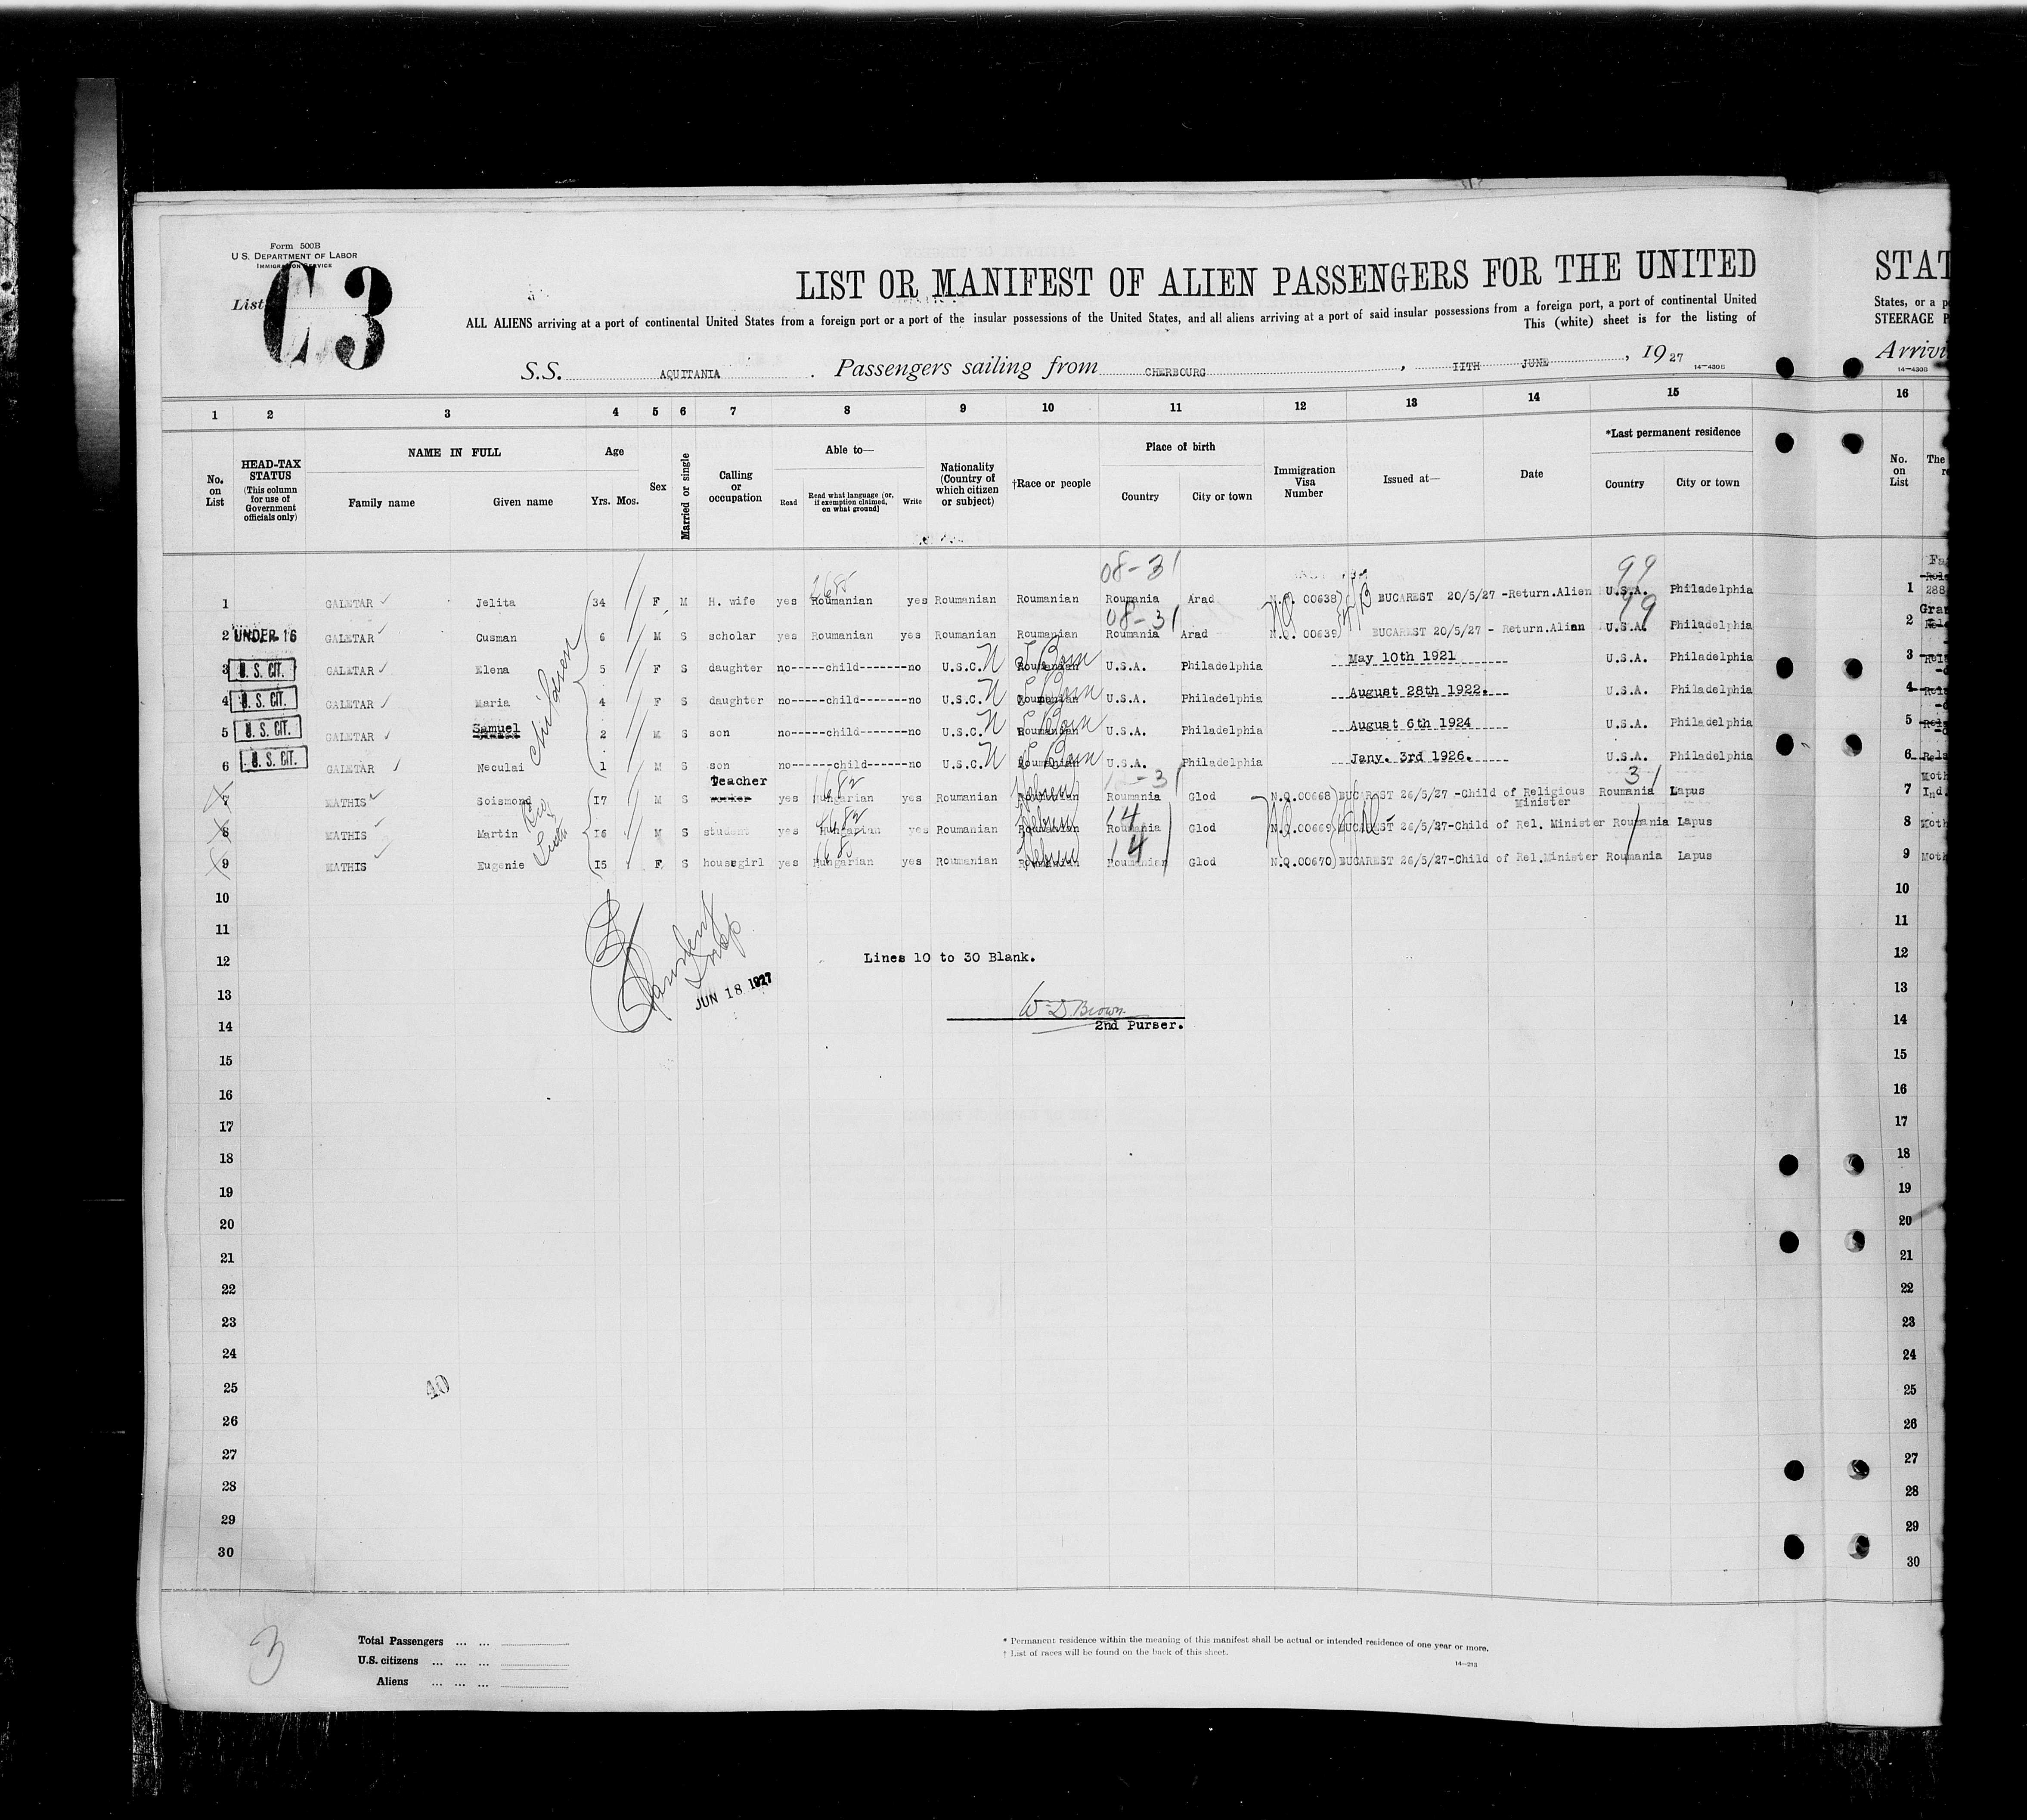 Form 500B
U.S. DEPARTMENT OF LABOR
IMMIGRATION SERVICE
List C3
LIST OR MANIFEST OF ALIEN PASSENGERS FOR THE UNITED
STAT
ALL ALIENS arriving at a port of continental United States from a foreign port or a port of the insular possessions of the United States, and all aliens arriving at a port of said insular possessions from a foreign port, a port of continental United
States, or a p
This (white) sheet is for the listing of
STEERAGE P
S.S. AQUITANIA . Passengers sailing from CHERBOURG , IITH JUNE , 1927
Arrivi
14—430B
14—430B
1 2 3 4 5 6 7 8 9 10 11 12 13 14 15 16
No. on List
HEAD-TAX STATUS (This column for use of Government officials only)
NAME IN FULL
Family name Given name
Age
Yrs. Mos.
Sex
Married or single
Calling or occupation
Able to—
Read
Read what language (or, if exemption claimed, on what ground)
Write
Nationality (Country of which citizen or subject)
†Race or people
Place of birth
Country City or town
Immigration Visa Number
Issued at—
Date
*Last permanent residence
Country City or town
No. on List
The
08-31 99
1 GALETAR Jelita 34 F M H. wife yes Roumanian yes Roumanian Roumanian Roumania Arad N.Q. 00638 BUCAREST 20/5/27 -Return.Alien U.S.A. Philadelphia 1 288
08-31 99
2 UNDER 16 GALETAR Cusman 6 M S scholar yes Roumanian yes Roumanian Roumanian Roumania Arad N.Q. 00639 BUCAREST 20/5/27 - Return.Alien U.S.A. Philadelphia 2
3 U. S. CIT. GALETAR Elena 5 F S daughter no-----child-------no U.S.C. Roumanian U.S.A. Philadelphia May 10th 1921 U.S.A. Philadelphia 3
4 U. S. CIT. GALETAR Maria 4 F S daughter no-----child-------no U.S.C. Roumanian U.S.A. Philadelphia August 28th 1922. U.S.A. Philadelphia 4
5 U. S. CIT. GALETAR Samuel 2 M S son no------child------no U.S.C. Roumanian U.S.A. Philadelphia August 6th 1924 U.S.A. Philadelphia 5
6 U. S. CIT. GALETAR Neculai 1 M S son no------child------no U.S.C. Roumanian U.S.A. Philadelphia Jany. 3rd 1926. U.S.A. Philadelphia 6
children
Teacher
7 MATHIS Soismond 17 M S worker yes Hungarian yes Roumanian Roumanian Hebrew Roumania Glod N.Q.00668 BUCAREST 26/5/27 -Child of Religious Minister Roumania Lapus 7 Ind.
8 MATHIS Martin 16 M S student yes Hungarian yes Roumanian Roumanian Hebrew Roumania Glod N.Q.00669 BUCAREST 26/5/27-Child of Rel. Minister Roumania Lapus 8 Moth
9 MATHIS Eugenie 15 F S housegirl yes Hungarian yes Roumanian Roumanian Hebrew Roumanian Glod N.Q.00670 BUCAREST 26/5/27-Child of Rel.Minister Roumania Lapus 9 Moth
10 10
11 11
12 Lines 10 to 30 Blank. 12
13 JUN 18 1927 13
W D Brown
14 2nd Purser. 14
15 15
16 16
17 17
18 18
19 19
20 20
21 21
22 22
23 23
24 24
25 40 25
26 26
27 27
28 28
29 29
30 30
3
Total Passengers ... ...
U.S. citizens ... ... ...
Aliens ... ... ...
* Permanent residence within the meaning of this manifest shall be actual or intended residence of one year or more.
† List of races will be found on the back of this sheet.
14—213